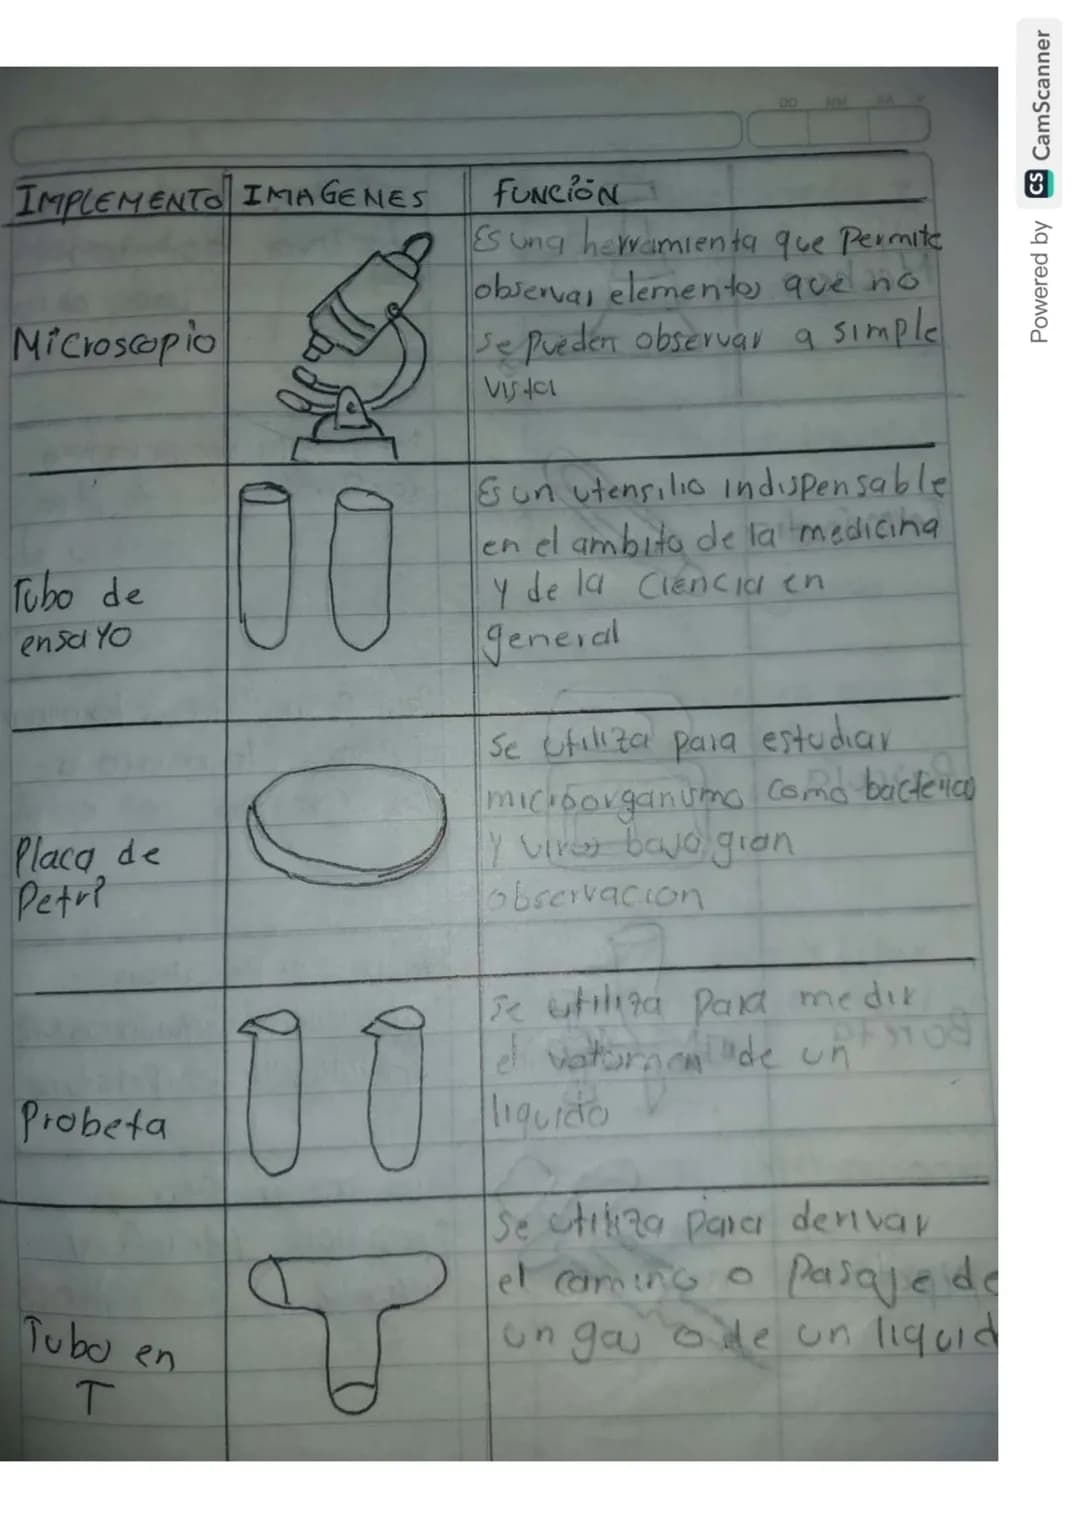 DD MM AA
IMPLEMENTO IMAGENES FUNCIÓN
Microscopio
Es una herramienta que Permite
observar elementos que no
se pueden observar a simple
vista
Tubo de
ensaYo
Es un utensilio indispensable
en el ambito de la medicina
y de la Ciencia en
general
Placa de
Petri
Se utiliza para estudiar
microorganismo como bacterias
Y virus bajo gran
observacion
Probeta
Se utiliza para medir
el de un
liquido
Tubo en
T
Se utiliza para derivar
el camino o Pasaje de
un gas o de un liquid
Powered by CS CamScanner